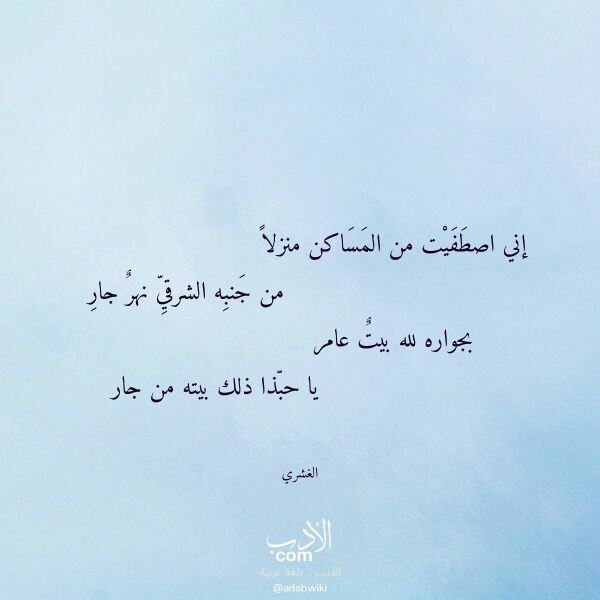 إني اصطَفَيْت من المَسَاكن منزلاً
من جَنبِه الشرقيِّ نهرٌ جارِ
بجواره لله بيتٌ عامر
يا حبّذا ذلك بيته من جار
الغشري
الأدب
com
الأدب .. بلغة عربية
@adabwiki